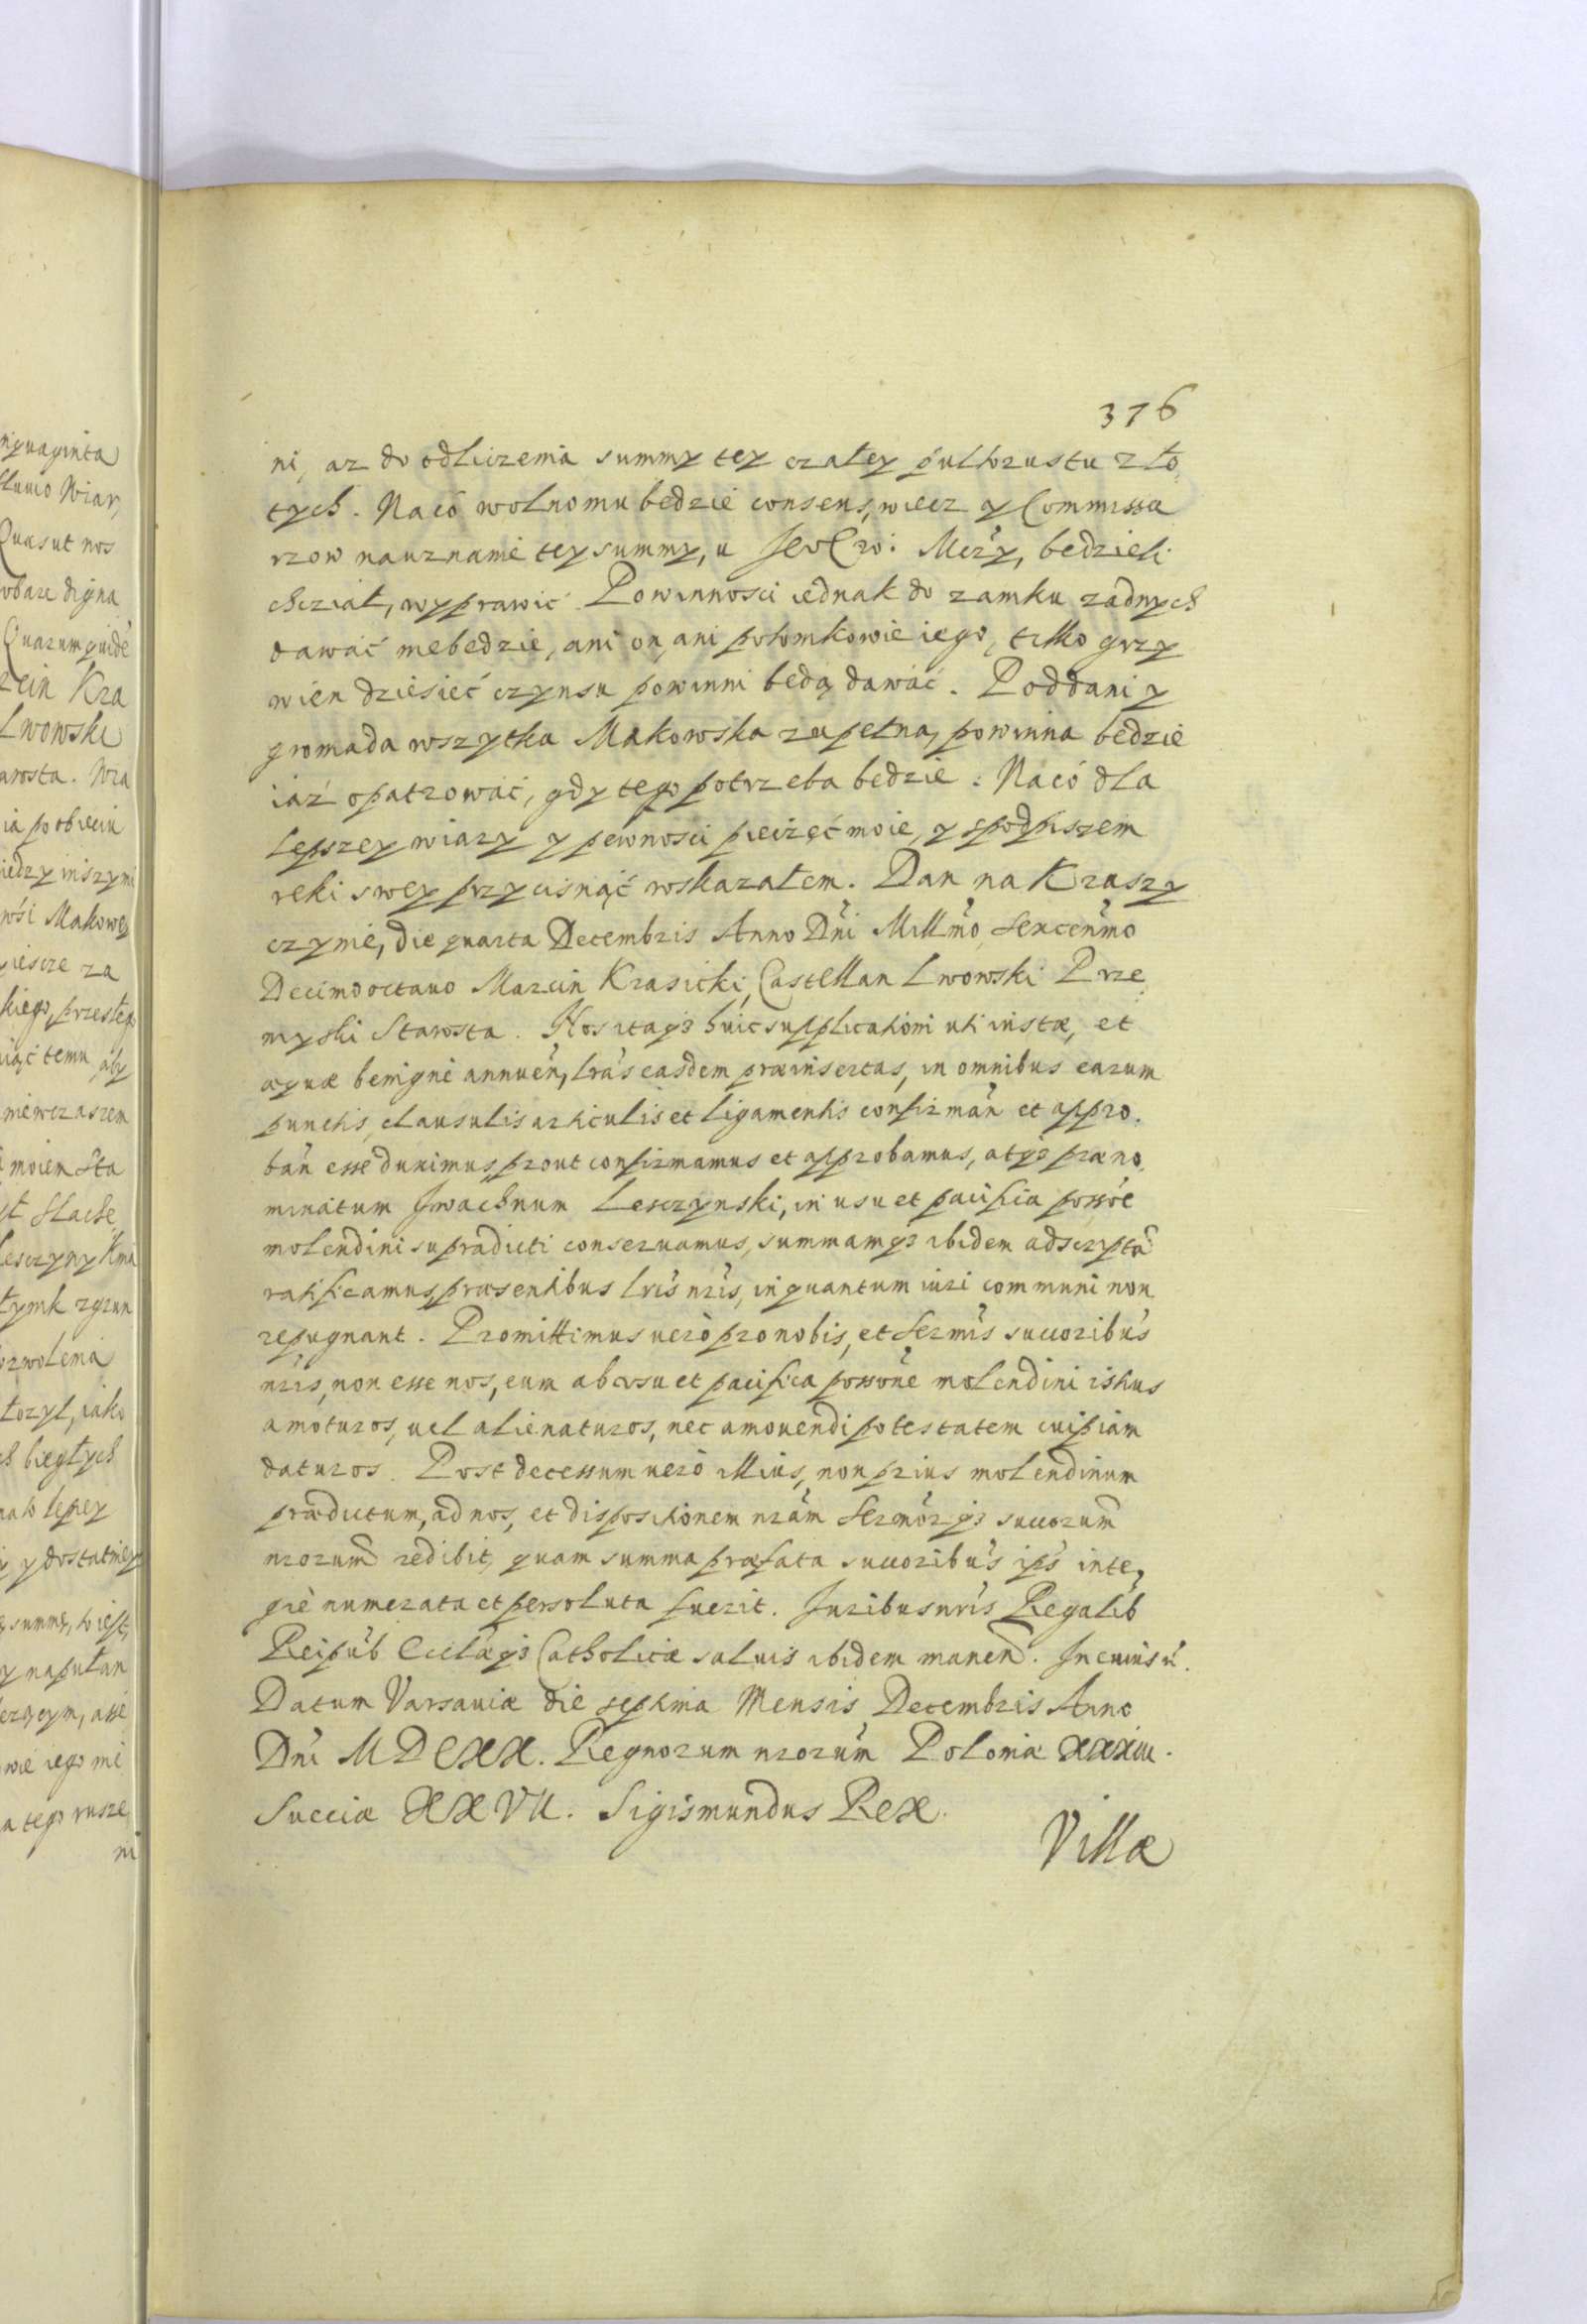 376
ni, az do odliczenia summy tey czałey pułtorustu zło
tych. Nacó wolnomu bedzie consens, wiecz y Commissa
rzow nauznanie tey summy, u JeoKro: Mczy, bedzieli
chcział, wyprawić. Powinnosci iednak do zamku zadnych
dawać niebedzie, ani on, ani potomkowie iego, tilko grzy
wien dziesieć czynsu powinni bedą dawać. Poddani y
gromada wszytka Makowska zupełna, powinna bedzie
iaź opatrować, gdy tego potrzeba bedzie. Nacó dla
lepszey wiary y pewnosci pieczęć moie, y spodpiszem
reki swey przycisnąć wskazałem. Dan na Kraszy
czynie, die quarta Decembris Anno Dni Millmo Sexcenmo
Decimooctauo Marcin Krasicki, Castellan Lwowski Prze
myski Starosta. Nos itaq3 huic supplicationi uti iustæ, et
æquæ benigne annuen, lras easdem præinsertas, in omnibus earum
punctis, clausulis articulis et ligamentis confirman et appro
ban esse duximus, prout confirmamus et approbamus, atq3 præno
minatum Jwachnum Lesczynski, in usu et pacifica possoe
molendini supradicti conseruamus, summamq3 ibidem adscriptã
ratificamus, præsentibus lris nris, inquantum iuri communi non
repugnant. Promittimus uerò pro nobis, et Sermis succoribus
nris, non esse nos, eum ab usu et pacifica possone molendini istius
amoturos, uel alienaturos, nec amouendi potestatem cuipiam
daturos. Post decessum uerò illius, non prius molendinum
prædictum, ad nos, et dispositionem nram Sermorq3 succorum
nrorum redibit, quam summa præfata succoribus ips inte
grè numerata et persoluta fuerit. Juribus nris Regalib
Reipub Ecclæq3 Catholicæ saluis ibidem manen. In cuius r.
Datum Varsauiæ die septima Mensis Decembris Anno
Dni MDCXX. Regnorum nrorum Poloniæ XXXIII.
Sueciæ XXVII. Sigismundus Rex.
Villæ